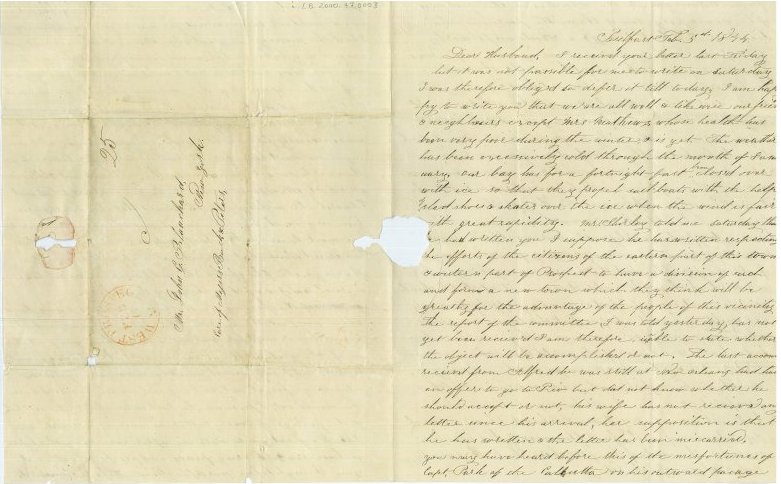 LB 2000.47.0003
25
Mr. John C. Blanchard,
New York.
Care of Messrs Buck &
Belfast Feb. 5th 18
Dear Husband, I received your letter last Friday
but it was not possible for me to write on Saturday
I was therefore obliged to defer it till to day, I am hap
py to write you that we are all well & likewise our frien
& neighbours except Mrs Mathews, whose health has
been very poor during the winter & is yet. The weather
has been excessively cold through the month of Jan
uary, our bay has for a fortnight past been closed over
with ice so that they propel sail boats with the help
of sled shoes & skates over the ice when the wind is fair
with great rapidity. Mr. Shirley told me saturday tha
he had written you I suppose he has written respecting
the efforts of the citizens of the eastern part of this town
& western part of Prospect to have a division of each
and form a new town which they think will be
greatly for the advantage of the people of this vicinity
the report of the committee, I was told yesterday, has not
yet been received I am therefore unable to state whether
the object will be accomplished or not. The last accou
received from Alfred he was still at New Orleans had had
an offer to go to Rio but did not know whether he
should accept or not, his wife has not received any
letter since his arrival, her supposition is that
he has written & the letter has been miscarried.
you may have heard before this of the misfortunes of
Capt. Park of the Calcutta on his outward passage